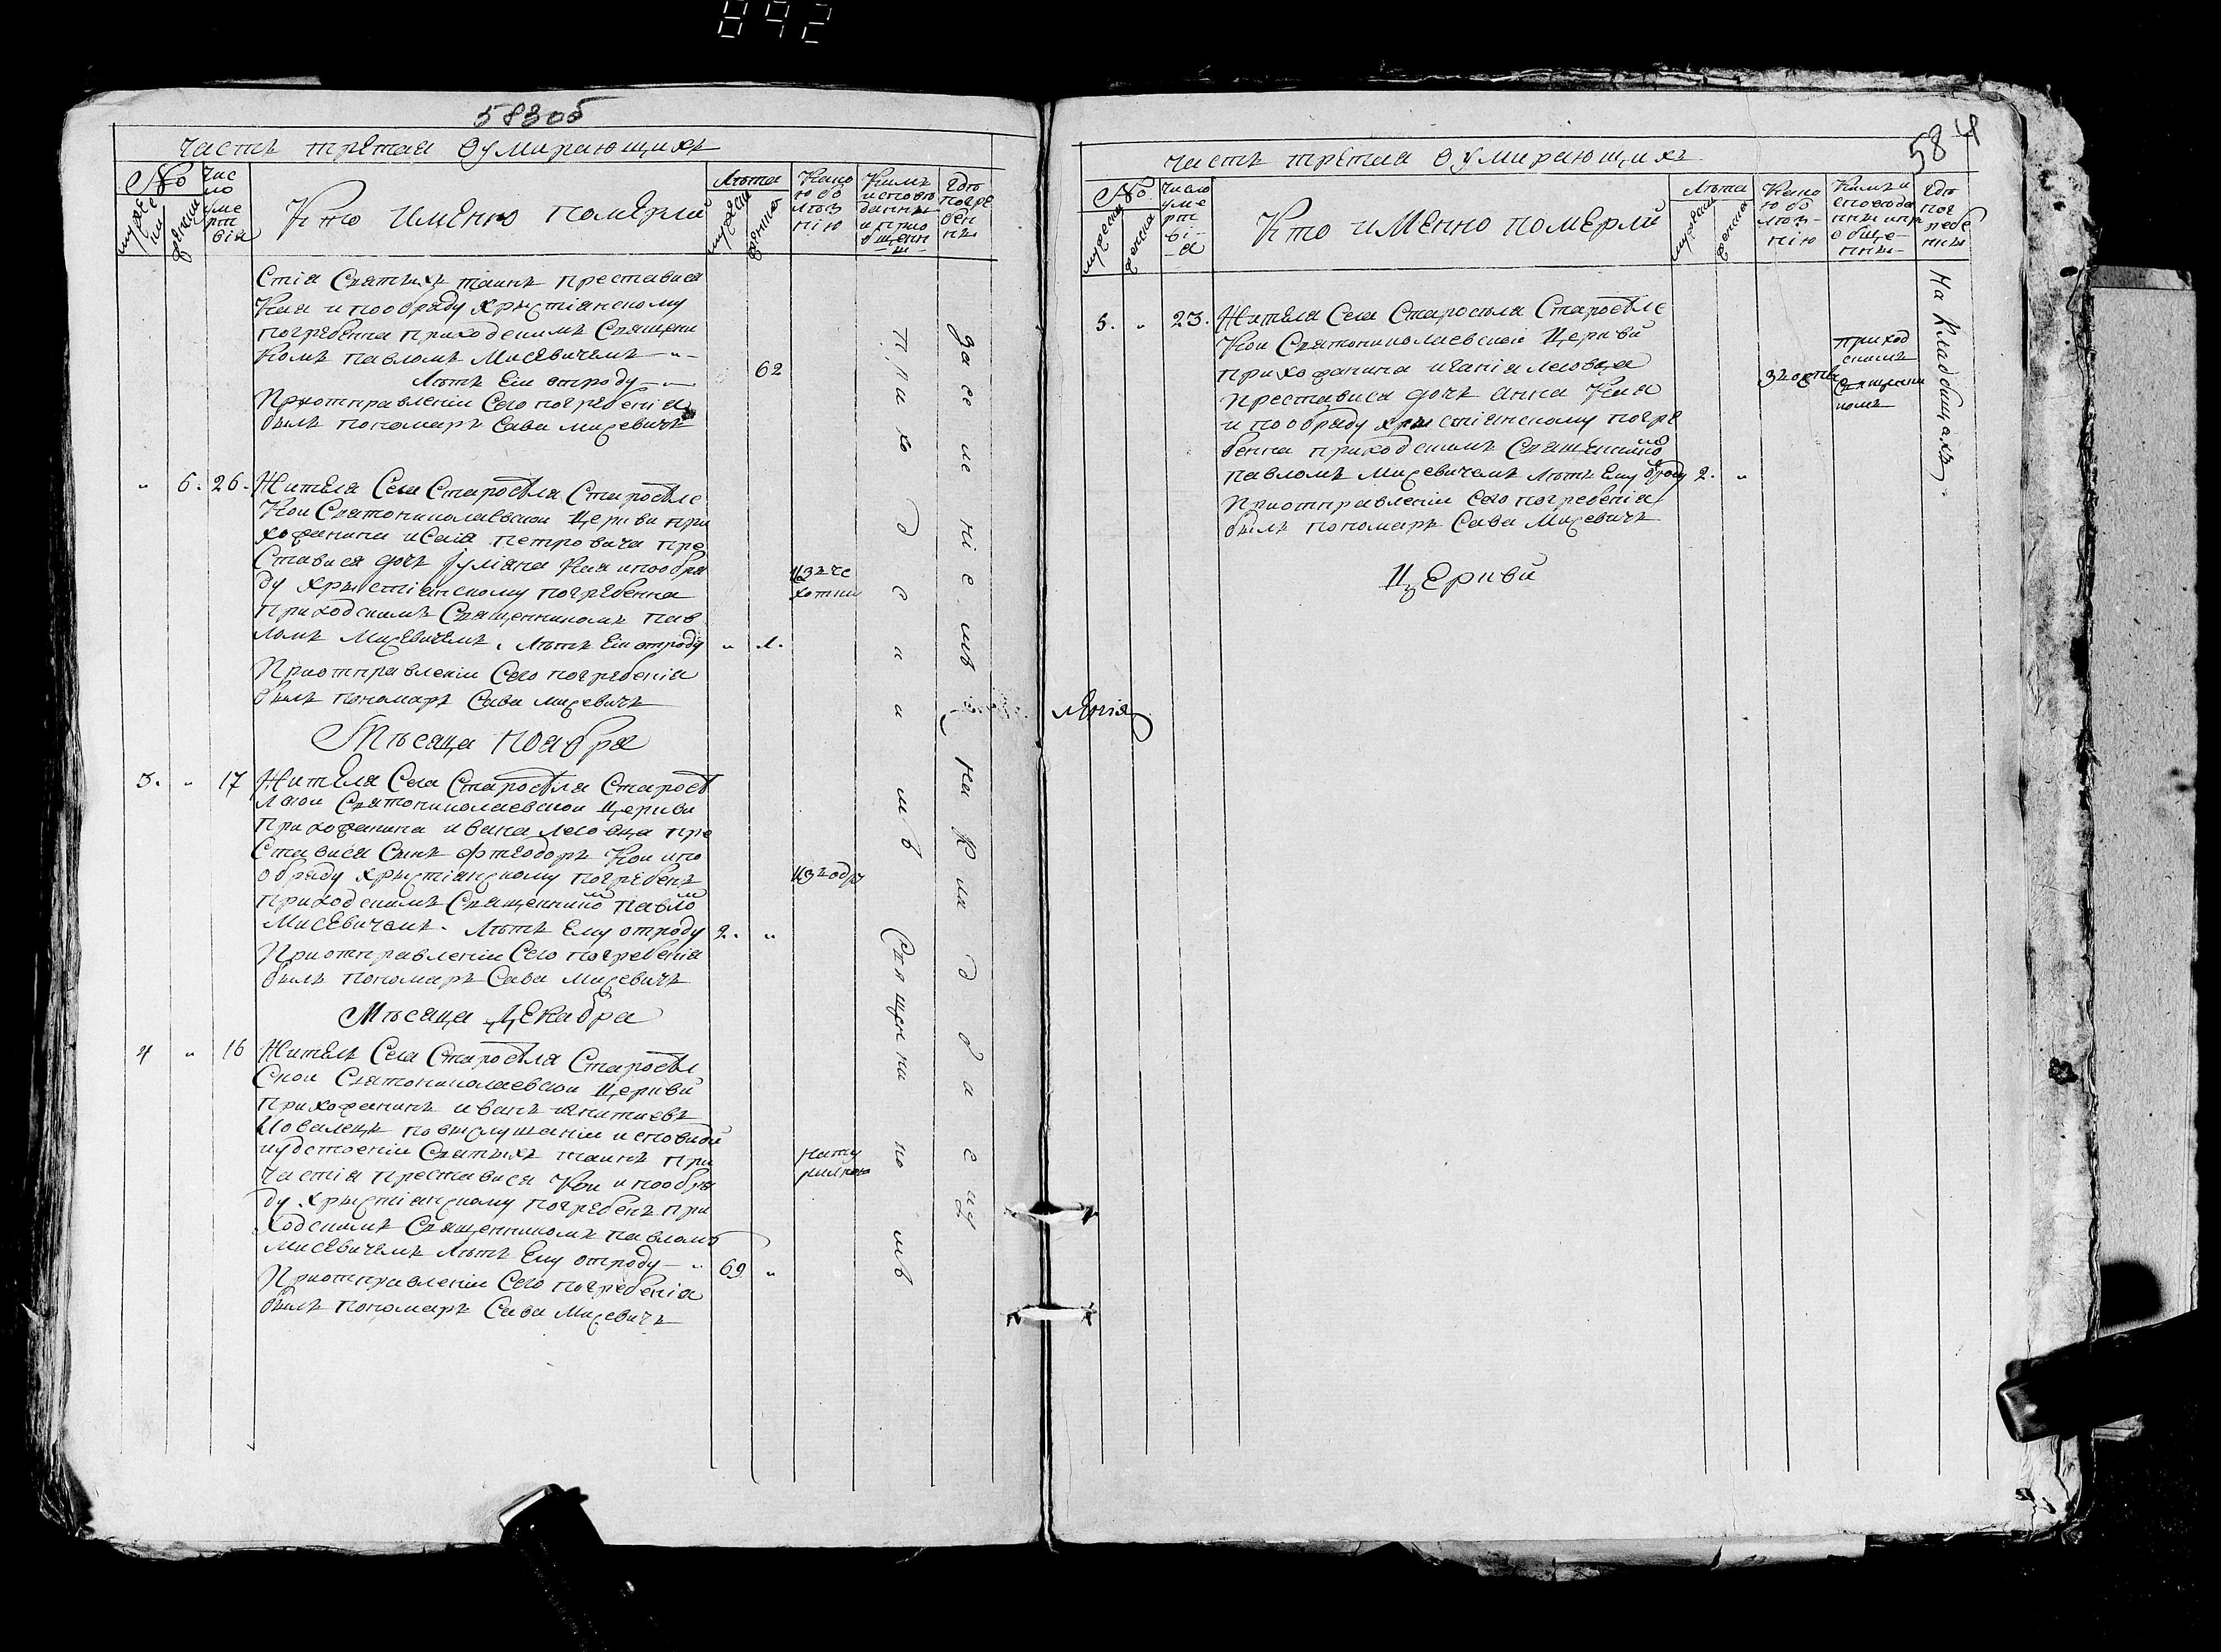 892
583об
Часть третая о умирающихъ
№
мужески
женски
Чис
ло
уме
рт
вія
Кто именно померли
Лѣта
мужески
женско
Како
ю бо
лѣз
нію
Кимъ
исповѣ
данны
и прио
бщенн
ы
Где
погре
бен
ны
Стія Святыхъ таинъ преставися
Коя и по обряду Хрыстіанскому
погребенна приходскимъ Священи
комъ Павломъ Мисевичемъ
Лѣтъ Еи отроду 62
При отправленіи Сего погребенія
былъ пономаръ Сава Мисевичъ
" 6. 26. Жителя Села Старосѣля Старосѣлс
кои Святониколаевскои Церкви при
хожанина Исаія Петровича пре
ставися дочь Іуліяна Коя и по обря
ду Хрыстіанскому погребенна
приходскимъ Священникомъ Пав
ломъ Мисевичемъ. Лѣтъ Еи отроду " 1.
изъ че
хотки
При отправленіи Сего погребенія
былъ пономаръ Сава Мисевичъ
Мѣсяца Ноября
3. " 17 Жителя Села Старосѣля Старосѣ
лскои Святониколаевскои Церкви
прихожанина Ивана Леговца пре
ставися Сынъ Фтеодоръ Кои и по
обряду Хрыстіанскому погребенъ
приходскимъ Священнико Павло
Мисевичемъ. Лѣтъ Ему отроду 2. "
При отправленіи Сего погребенія
былъ пономаръ Сава Мисевичъ
Мѣсяца Декабря
4 " 16 Житель Села Старосѣля Старосѣл
скои Святониколаевскои Церкви
прихожанинъ Иванъ Игнатиевъ
по выслушаніи исповеди
и удостоеніи Святыхъ таинъ при
частія преставися Кои и по обря
ду Хрыстіанскому погребенъ при
ходскимъ Священникомъ Павломъ
Мисевичемъ Лѣтъ Ему отроду 69 "
нату
ралною
При отправленіи Сего погребенія
былъ пономаръ Сава Мисевичъ
приходскимъ Священникомъ
на Кладбищу
584
Часть третия о умирающихъ
№
мужески
женска
Число
уме
рт
ві
я
Кто именно померли
Лѣта
мужески
женска
Како
ю бо
лѣз
нію
Кимъ и
споведа
нны и пр
иобще
нны
Где
пог
ребе
нны
5. " 23. Жителя Села Старосѣля Старосѣлс
кои Святониколаевскои Церкви
прихожанина Леговца
преставися дочь Анна Коя
и по обряду Хрыстіанскому погре
бенна приходскимъ Священнико
Павломъ Мисевичемъ Лѣтъ Ему отроду 2. "
При отправленіи Сего погребенія
былъ пономаръ Сава Мисевичъ
приход
скимъ
Священни
комъ
На Кладбищахъ
Церкви